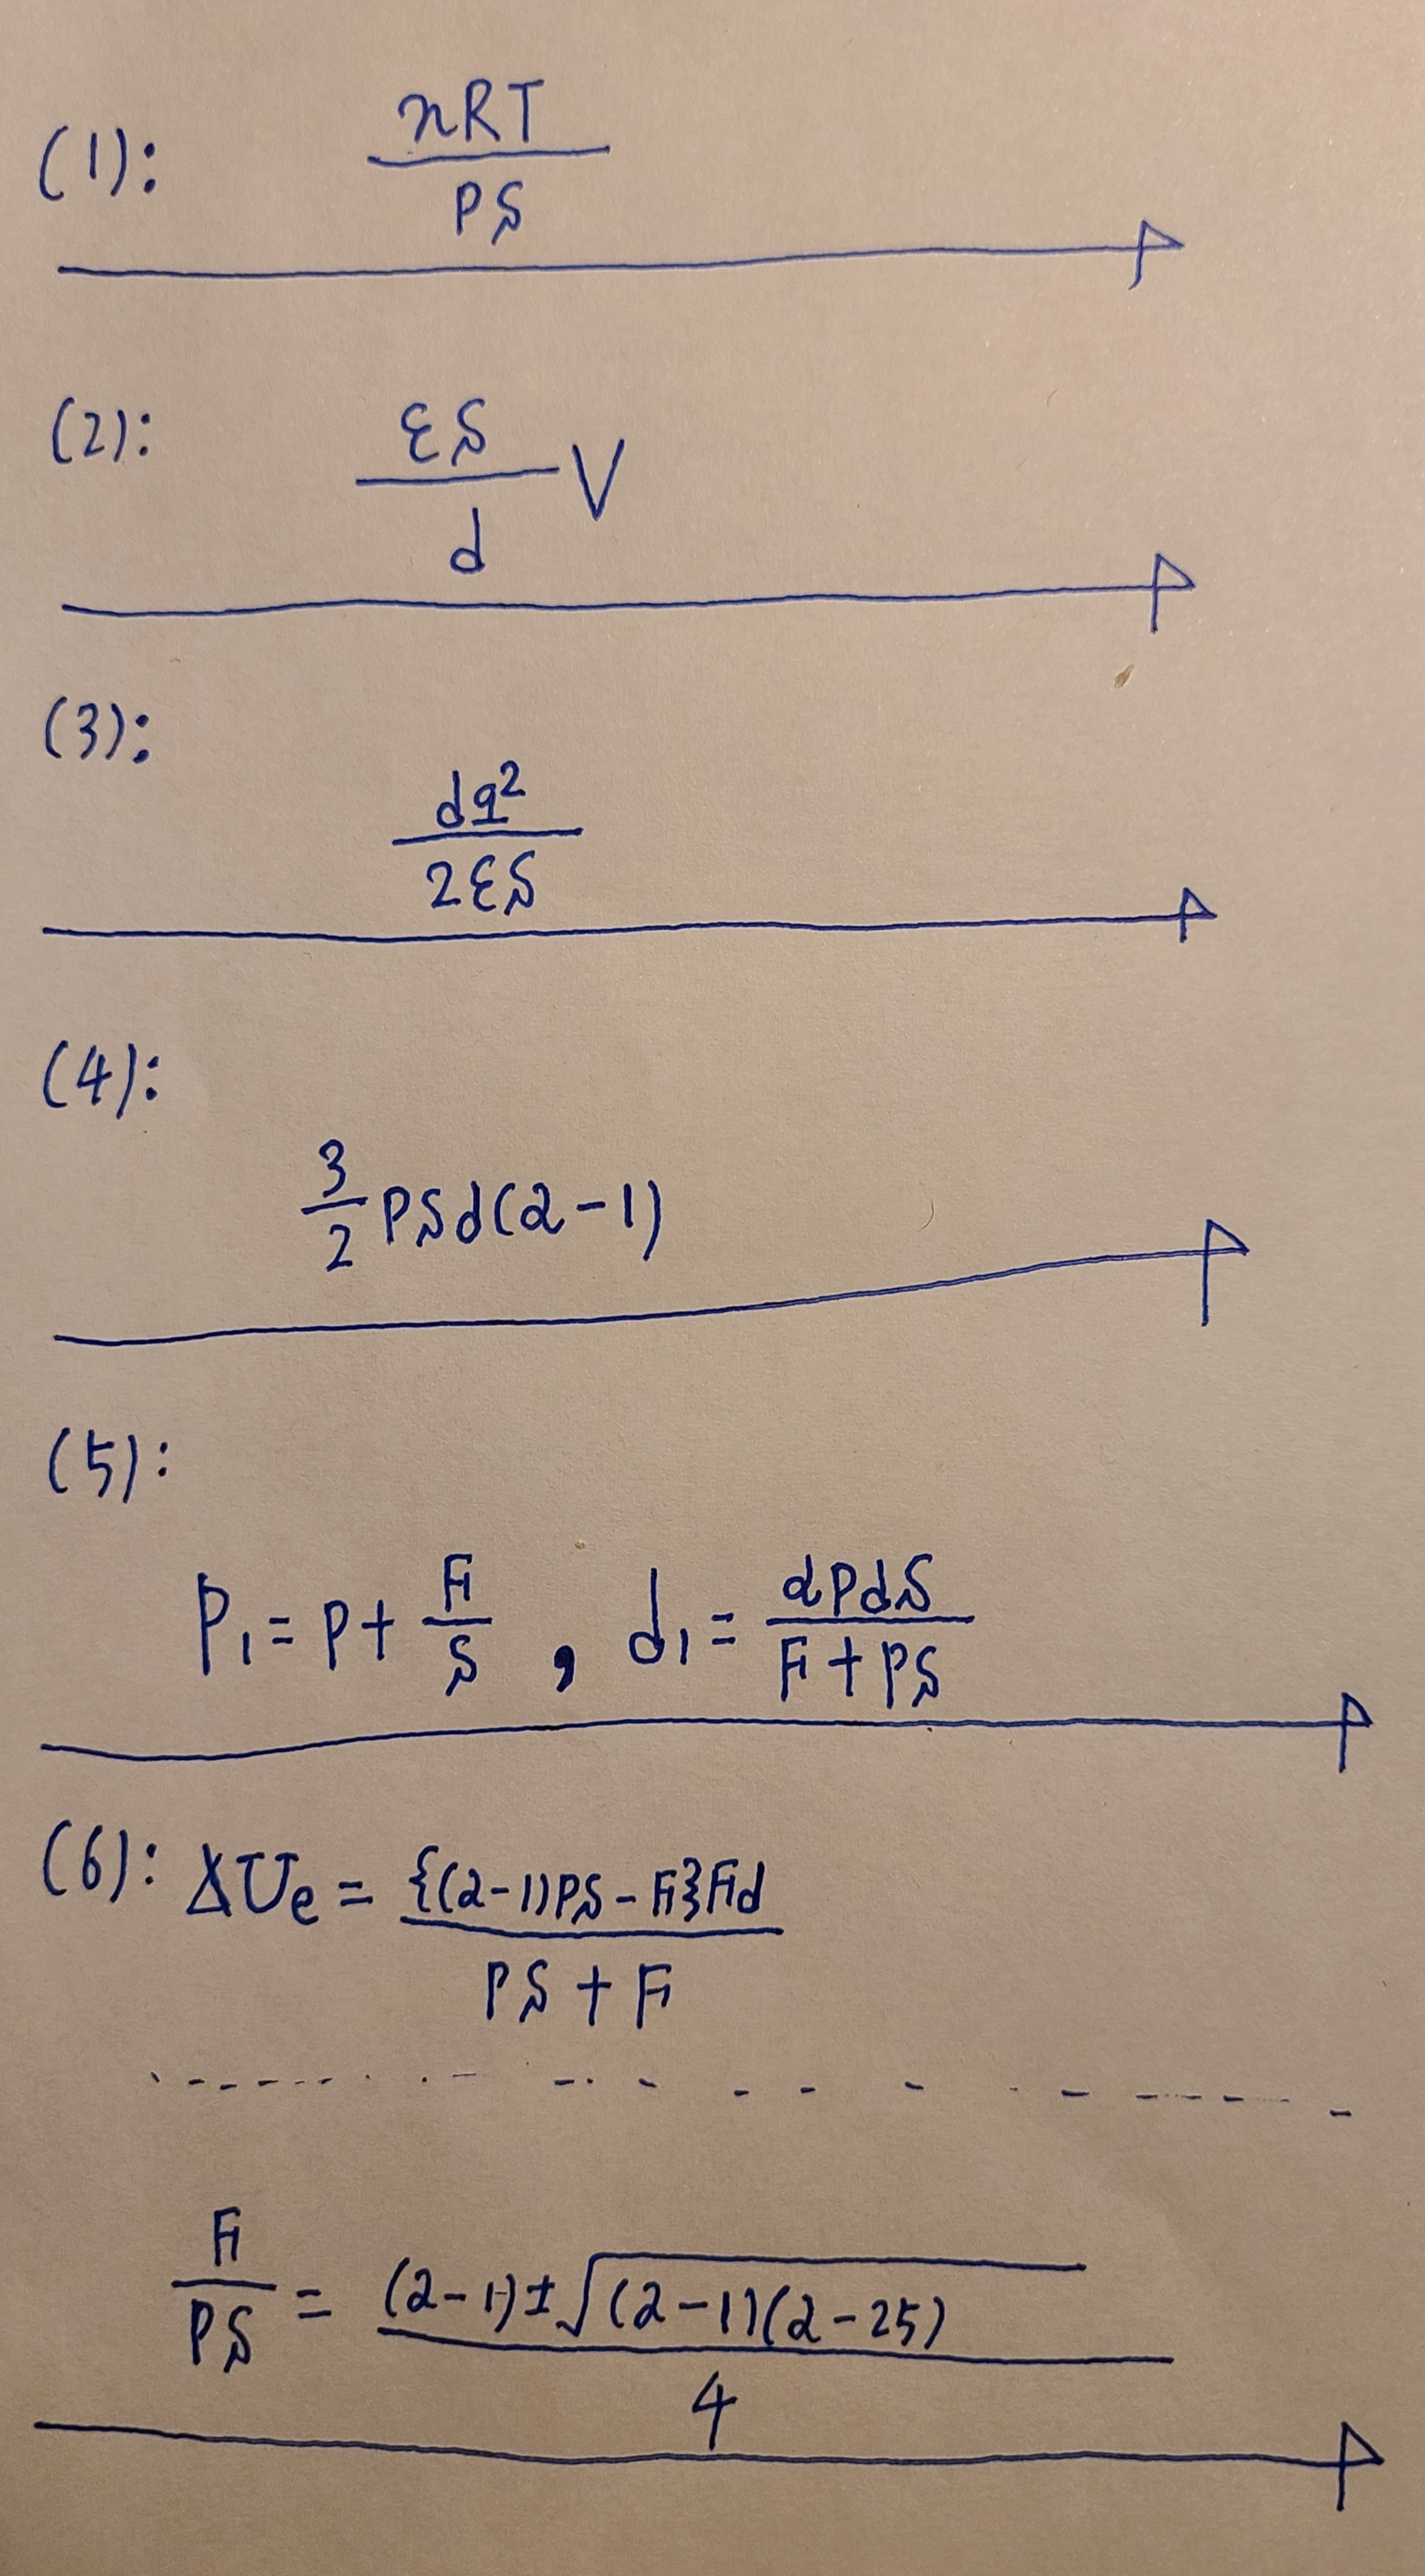 (1): nRT / PS
(2): εS / d V
(3):
dq² / 2εS
(4):
3/2 PSd(α-1)
(5):
P₁ = P + F₁/S , d₁ = αPdS / F₁+PS
(6): ΔUe = {(α-1)PS-F₁}F₁d / PS+F₁
F₁/PS = (α-1)±√(α-1)(α-25) / 4